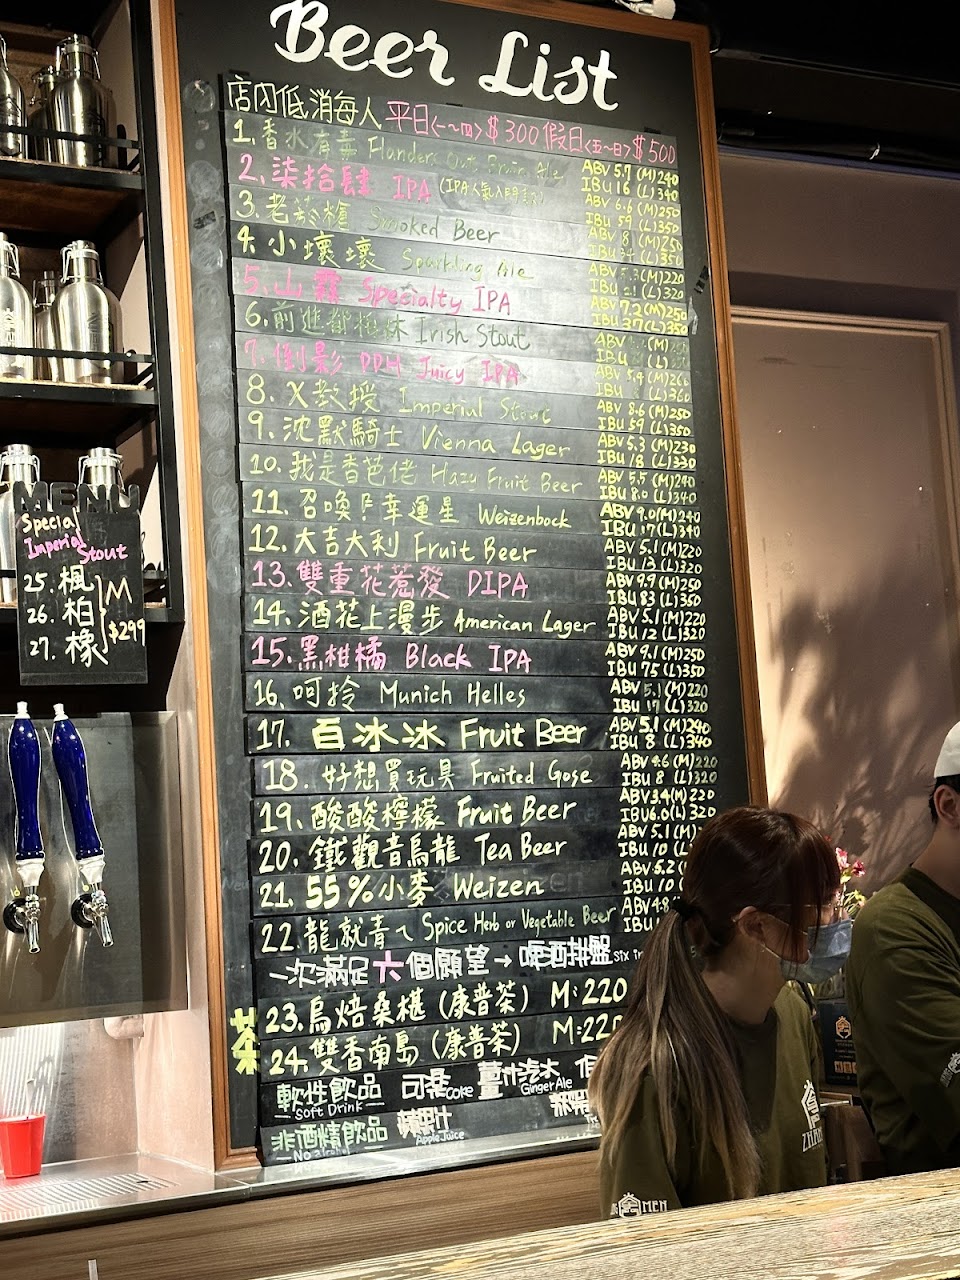 Beer List
店內低消每人 平日<一~四>$300 假日<五~日>$500
1.香水有毒 Flanders Oud Bruin Ale ABV 5.7 (M)240
IBU 16 (L)340
2.柒拾肆 IPA (IPA人氣入門款) ABV 6.6 (M)250
IBU 59 (L)350
3.老菸槍 Smoked Beer ABV 8 (M)250
IBU 34 (L)350
4.小壞壞 Sparkling Ale ABV 5.3(M)220
IBU 21 (L)320
5.山霧 Specialty IPA ABV 7.2(M)250
IBU 37(L)350
6.前進都柏林 Irish Stout ABV (M)
IBU (L)
7.倒影 DDH Juicy IPA ABV 5.4(M)260
IBU (L)360
8.X教授 Imperial Stout ABV 8.6(M)250
IBU 59 (L)350
9.沈默騎士 Vienna Lager ABV 5.3(M)230
IBU 18 (L)330
10.我是香芭佬 Hazy Fruit Beer ABV 5.5(M)240
IBU 8.0 (L)340
11.召喚幸運星 Weizenbock ABV 9.0(M)240
IBU 17(L)340
12.大吉大利 Fruit Beer ABV 5.1(M)220
IBU 13(L)320
13.雙重花惹發 DIPA ABV 9.9(M)250
IBU 83(L)350
14.酒花上漫步 American Lager ABV 5.1(M)220
IBU 12(L)320
15.黑柑橘 Black IPA ABV 9.1(M)250
IBU 75(L)350
16.呵拎 Munich Helles ABV 5.1(M)220
IBU 17(L)320
17.百冰冰 Fruit Beer ABV 5.1(M)240
IBU 8 (L)340
18.好想買玩具 Fruited Gose ABV 4.6(M)220
IBU 8 (L)320
19.酸酸檸檬 Fruit Beer ABV 3.4(M)220
IBU 6.0(L)320
20.鐵觀音烏龍 Tea Beer ABV 5.1(M)
IBU 10 (L)
21.55%小麥 Weizen ABV 5.2(
IBU 10 (
22.龍就青ㄟ Spice Herb or Vegetable Beer ABV 4.8
IBU
一次滿足六個願望→啤酒拼盤 Six
茶
23.烏焙桑椹(康普茶) M:220
24.雙香南島(康普茶) M:220
軟性飲品 可樂 Coke 薑汁汽水 Ginger Ale
Soft Drink
非酒精飲品 蘋果汁
No alcohol Apple Juice
MENU
Special
Imperial Stout
25.楓
26.柏
27.橡
M
$299
ZHAN
MEN